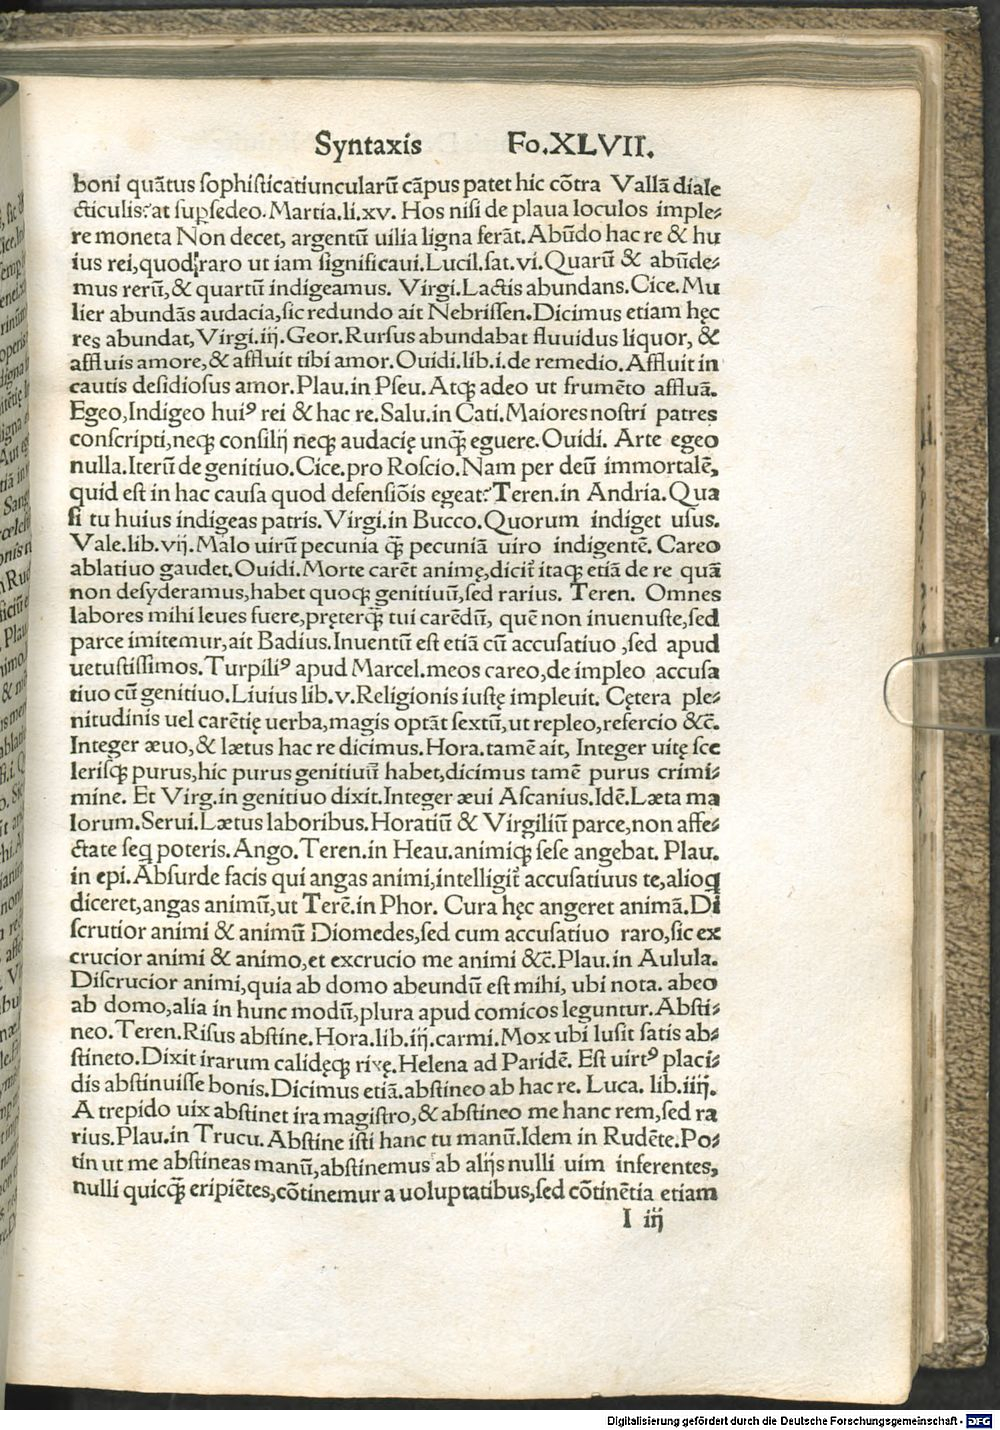 Syntaxis Fo.XLVII.
boni quãtus sophisticatiuncularũ cãpus patet hic cõtra Vallã diale
cticulis: at supsedeo. Martia.li.xv. Hos nisi de plaua loculos imple-
re moneta Non decet, argentũ uilia ligna ferãt. Abũdo hac re & hu
ius rei, quod raro ut iam significaui. Lucil.sat.vi. Quarũ & abũde-
mus rerũ, & quartũ indigeamus. Virgi. Lactis abundans. Cice. Mu
lier abundãs audacia, sic redundo ait Nebrissen. Dicimus etiam hęc
res abundat, Virgi.iij. Geor. Rursus abundabat fluuidus liquor, &
affluis amore, & affluit tibi amor. Ouidi.lib.i. de remedio. Affluit in
cautis desidiosus amor. Plau. in Pseu. Atqꝫ adeo ut frumẽto affluã.
Egeo, Indigeo huiꝰ rei & hac re. Salu. in Cati. Maiores nostri patres
conscripti, neqꝫ consilij neqꝫ audacię unq̃ eguere. Ouidi. Arte egeo
nulla. Iterũ de genitiuo. Cice. pro Roscio. Nam per deũ immortalẽ,
quid est in hac causa quod defensiõis egeat: Teren. in Andria. Qua
si tu huius indigeas patris. Virgi. in Bucco. Quorum indiget usus.
Vale.lib.vij. Malo uirũ pecunia q̃ pecuniã uiro indigentẽ. Careo
ablatiuo gaudet. Ouidi. Morte carẽt animę, dicit̃ itaqꝫ etiã de re quã
non desyderamus, habet quoqꝫ genitiuũ, sed rarius. Teren. Omnes
labores mihi leues fuere, pręterq̃ tui carẽdũ, quẽ non inuenuste, sed
parce imitemur, ait Badius. Inuentũ est etiã cũ accusatiuo, sed apud
uetustissimos. Turpiliꝰ apud Marcel. meos careo, de impleo accusa
tiuo cũ genitiuo. Liuius lib.v. Religionis iustę impleuit. Cętera ple-
nitudinis uel carẽtię uerba, magis optãt sextũ, ut repleo, refercio &c̃.
Integer æuo, & lætus hac re dicimus. Hora. tamẽ ait, Integer uitę sce
lerisqꝫ purus, hic purus genitiuũ habet, dicimus tamẽ purus crimi-
mine. Et Virg. in genitiuo dixit. Integer æui Ascanius. Idẽ. Læta ma
lorum. Serui. Lætus laboribus. Horatiũ & Virgiliũ parce, non affe-
ctate seq̃ poteris. Ango. Teren. in Heau. animiqꝫ sese angebat. Plau.
in epi. Absurde facis qui angas animi, intelligit̃ accusatiuus te, alioq
diceret, angas animũ, ut Terẽ. in Phor. Cura hęc angeret animã. Di
scrutior animi & animũ Diomedes, sed cum accusatiuo raro, sic ex
crucior animi & animo, et excrucio me animi &c̃. Plau. in Aulula.
Discrucior animi, quia ab domo abeundũ est mihi, ubi nota. abeo
ab domo, alia in hunc modũ, plura apud comicos leguntur. Absti-
neo. Teren. Risus abstine. Hora.lib.iij.carmi. Mox ubi lusit satis ab-
stineto. Dixit irarum calidęqꝫ rixę. Helena ad Paridẽ. Est uirtꝰ placi-
dis abstinuisse bonis. Dicimus etiã. abstineo ab hac re. Luca. lib.iiij.
A trepido uix abstinet ira magistro, & abstineo me hanc rem, sed ra
rius. Plau. in Trucu. Abstine isti hanc tu manũ. Idem in Rudẽte. Po-
tin ut me abstineas manũ, abstinemus ab alijs nulli uim inferentes,
nulli quicq̃ eripiẽtes, cõtinemur a uoluptatibus, sed cõtinẽtia etiam
I iij
Digitalisierung gefördert durch die Deutsche Forschungsgemeinschaft - DFG